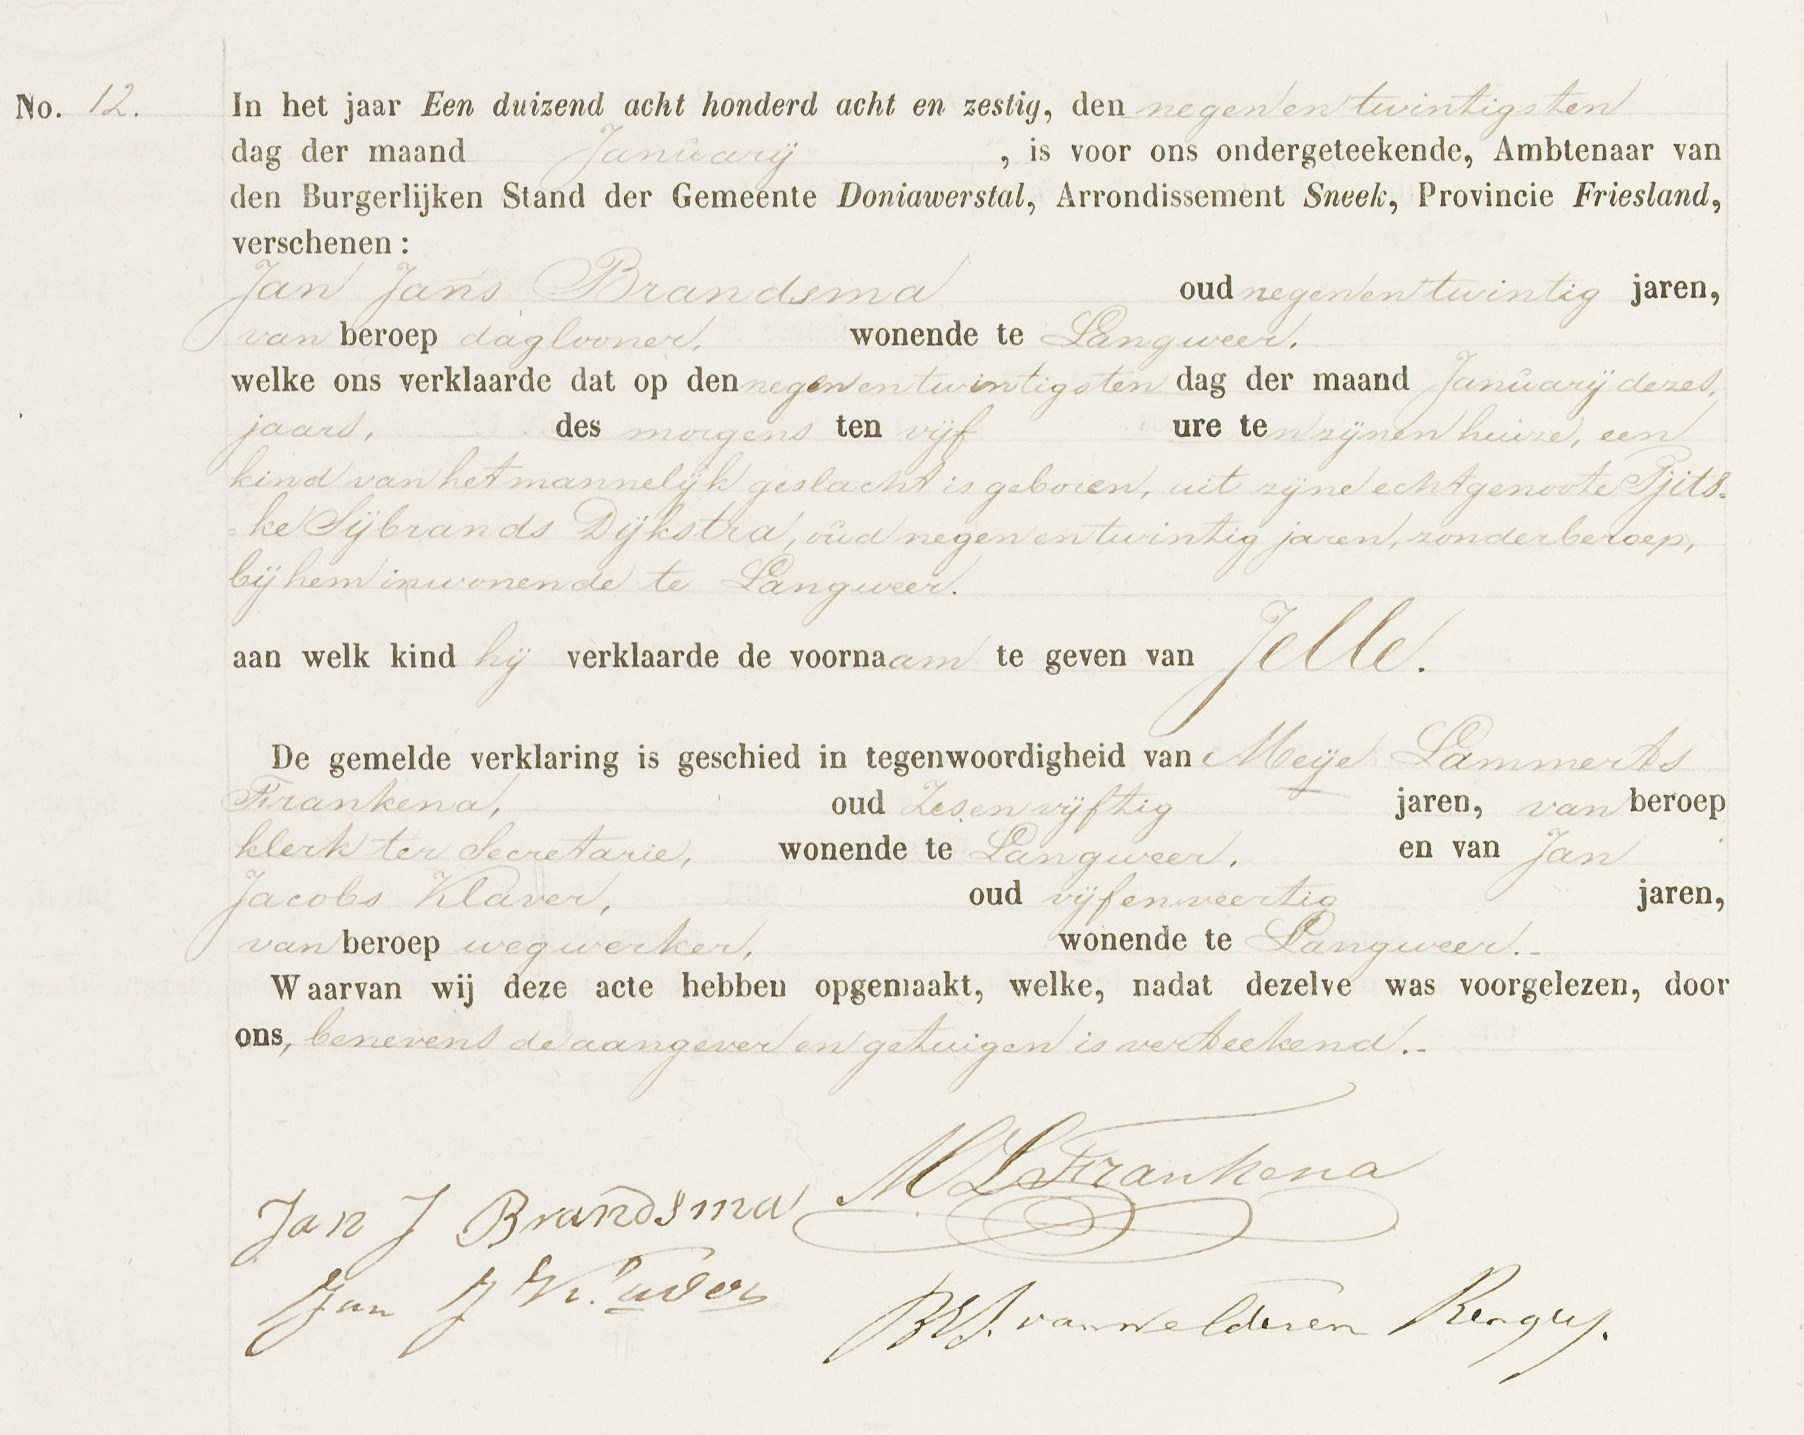 No. 12. In het jaar Een duizend acht honderd acht en zestig, den negen en twintigsten
dag der maand Januarij, is voor ons ondergeteekende, Ambtenaar van
den Burgerlijken Stand der Gemeente Doniawerstal, Arrondissement Sneek, Provincie Friesland,
verschenen:
Jan Jans Brandsma oud negen en twintig jaren,
van beroep daglooner, wonende te Langweer,
welke ons verklaarde dat op den negen en twintigsten dag der maand Januarij dezes
jaars, des morgens ten vijf ure ten zijnen huize, een
kind van het mannelijk geslacht is geboren, uit zijne echtgenoote Tjits-
=ke Sijbrands Dijkstra, oud negen en twintig jaren, zonder beroep,
bij hem inwonende te Langweer.
aan welk kind hij verklaarde de voornaam te geven van Jelle.
De gemelde verklaring is geschied in tegenwoordigheid van Meije Lammerts
Frankena, oud Zes en vijftig jaren, van beroep
klerk ter Secretarie, wonende te Langweer, en van Jan
Jacobs Klaver, oud vijf en veertig jaren,
van beroep wegwerker, wonende te Langweer.-
Waarvan wij deze acte hebben opgemaakt, welke, nadat dezelve was voorgelezen, door
ons, benevens de aangever en getuigen is verteekend.-
M L Frankena
Jan J Brandsma
Jan J Klaver
van Welderen Rengers.